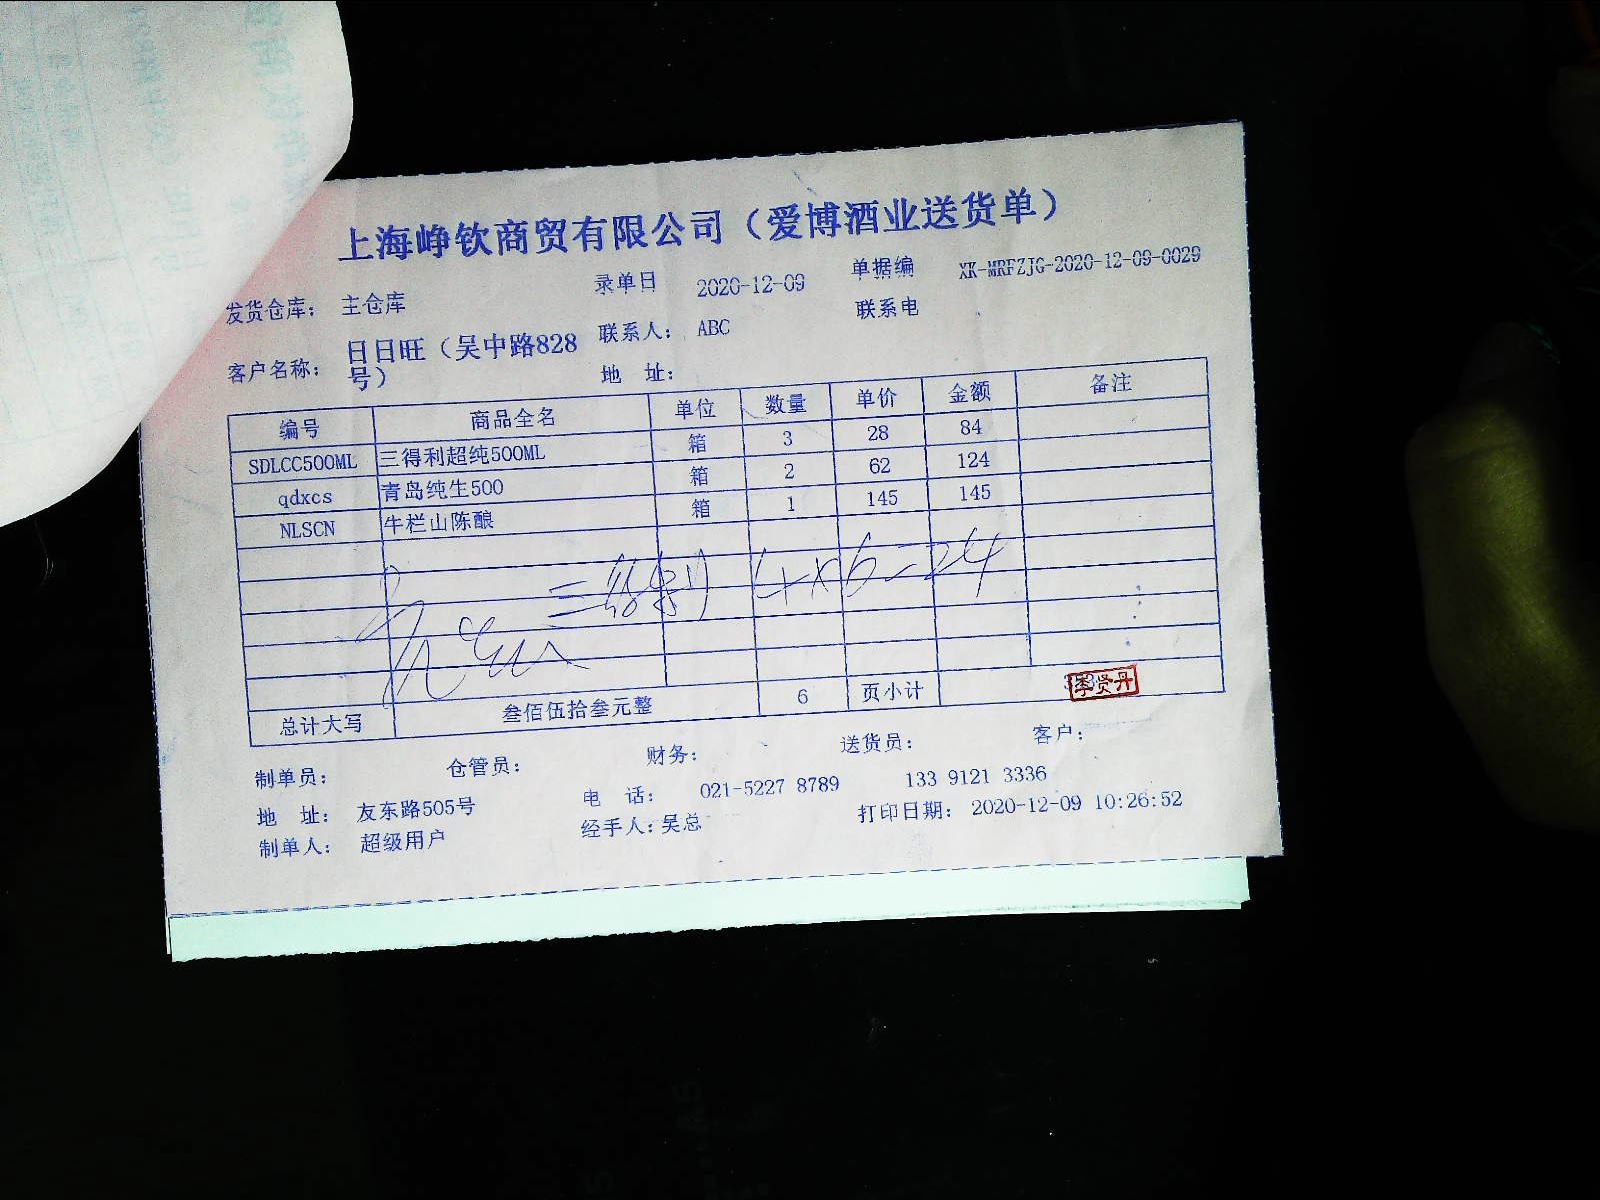 上海峥钦商贸有限公司（爱博酒业送货单）
发货仓库： 主仓库 录单日 2020-12-09 单据编 XK-MRFZJG-2020-12-09-0029
客户名称： 日日旺（吴中路828号） 联系人： ABC 联系电
地 址：
编号 商品全名 单位 数量 单价 金额 备注
SDLCC500ML 三得利超纯500ML 箱 3 28 84
qdxcs 青岛纯生500 箱 2 62 124
NLSCN 牛栏山陈酿 箱 1 145 145
三得利 4×6=24
总计大写 叁佰伍拾叁元整 6 页小计
李贤丹
制单员： 仓管员： 财务： 送货员： 客户：
地 址： 友东路505号 电 话： 021-5227 8789 133 9121 3336
制单人： 超级用户 经手人：吴总 打印日期： 2020-12-09 10:26:52